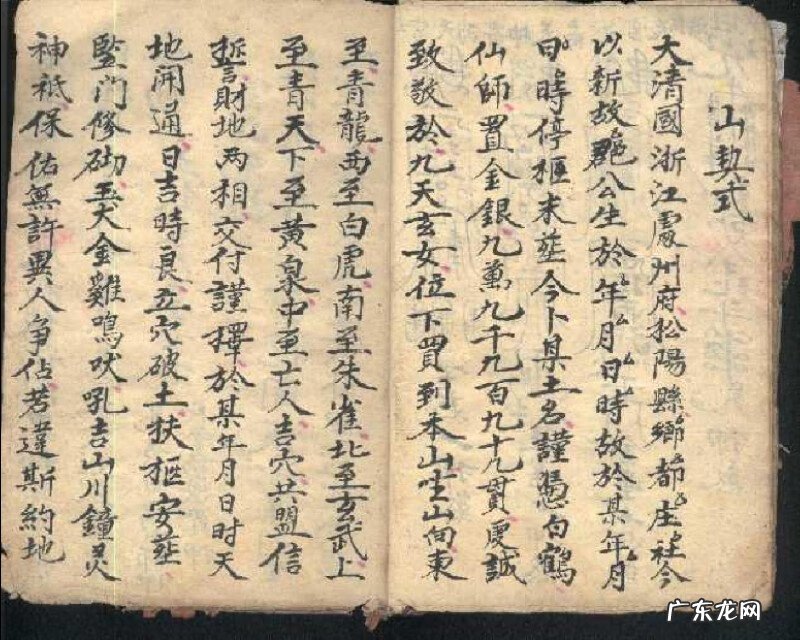 山契式
大清國浙江處州府松陽縣鄉都庄社今
以新故顯公生於年月日時故於某年月
日時停柩未塟今卜某土名謹憑白鶴
仙師置金銀九萬九千九百九十九貫虔誠
致敬於九天玄女位下買到本山坐山向東
至青龍西至白虎南至朱雀北至玄武上
至青天下至黃泉中至亡人吉穴共盟信
誓財地两相交付謹擇於某年月日时天
地開通日吉時良立穴破土扶柩安塟
監門修砌玉犬金雞鳴吠吼吉山川鐘灵
神祇保佑無許異人争佔若違斯約地
广东龙网